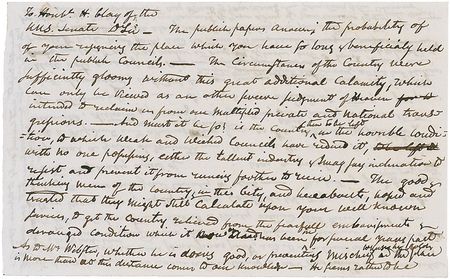 To Honble. H Clay of the
U.S. Senate D Sir — The publick papers announce the probability of
of your resigning the place which you have so long & beneficially held
in the publick Councils. — The Circumstances of the Country were
sufficiently gloomy without this great additional Calamity, which
can only be viewed as an other severe judgment of Heaven
intended to reclaim us from our multiplied private and National trans-
gressions. — And must it be so? is the Country in the horrible condi-
tion, to which Weak and Wicked Councils have reduced it,
with no one possessing, either the tallent industry & inclination to
resist and prevent it from running further to ruin. — The good &
thinking men of the Country, in this City, and hereabouts, hoped and
trusted that they might still calculate upon your well known
services, to get the Country relieved from the fearfull embarrassments &
deranged condition which it has been for several years past
As to Mr. Webster, whether he is doing good, or preventing mischief at the place
is more than at this distance comes to our knowledge — He seems rather to be